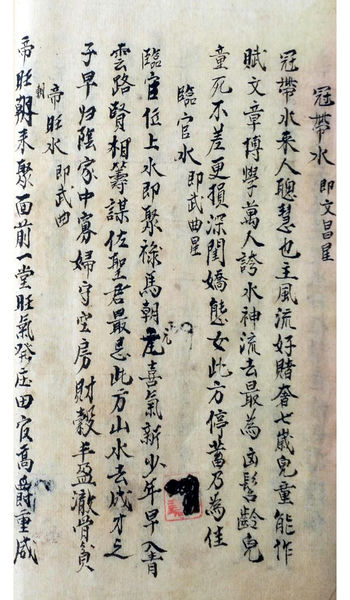 冠帶水 即文昌星
冠帶水来人聰慧也主風流好賭奢七歲兒童能作
賦文章博學萬人誇水神流去最為凶髫齡兒
童死不差更損深閨嬌態女此方停蓄乃為佳
臨官水 即武曲星
臨官位上水即聚祿馬朝元喜氣新少年早入青
雲路賢相籌謀佐聖君最忌此方山水去成才之
子早归陰家中寡婦守空房財穀半盈澈骨貧
帝旺水 即武曲
帝旺朝来聚面前一堂旺氣發庄田官高爵重威